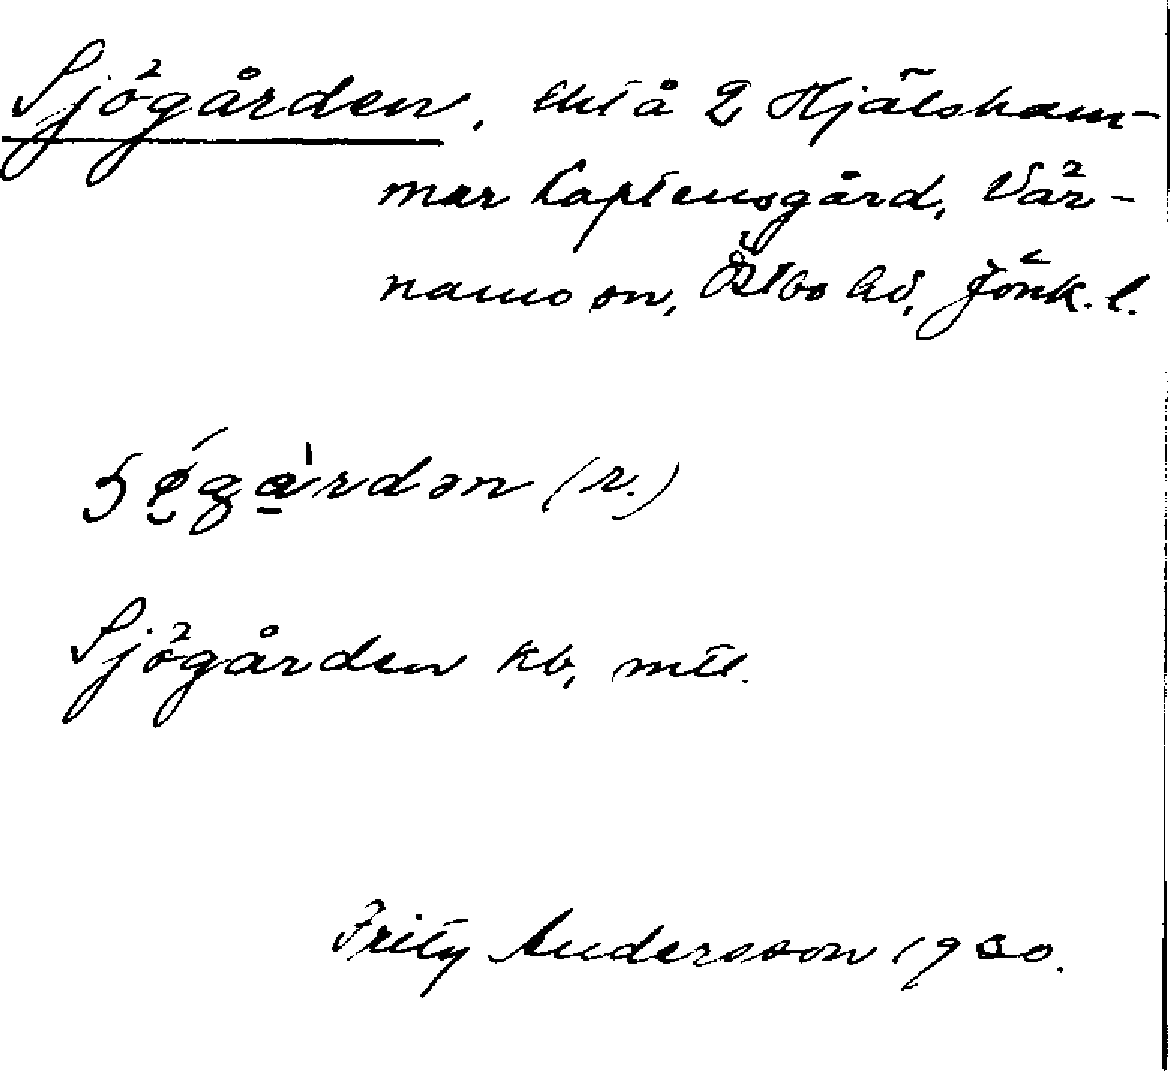 Sjögården, lht å 2 Hjälsham-
mar Kaptensgård, Vär-
namo sn, Östbo hd, Jönk. l.
(r.)
Sjögården kb, mtl.
Fritz Andersson 1930.